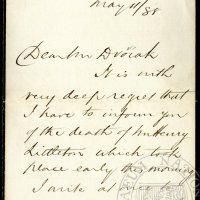 May 11/88
Dear Mr Dvořák
It is with
very deep regret that
I have to inform you
of the death of Mr Henry
Littleton which took
place early this morning
I write at once to